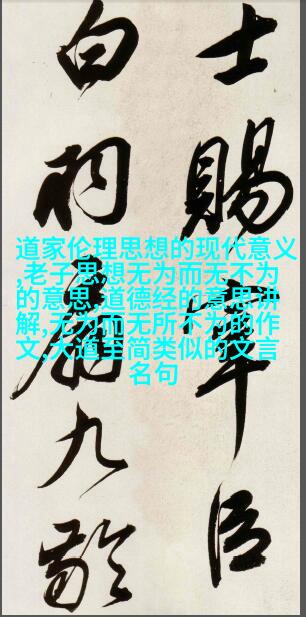 士賜宰臣
白羽扇九齡
道家伦理思想的现代意义
,老子思想无为而无不为
的意思,道德经的意思讲
解,无为而无所不为的作
文,大道至简类似的文言
名句